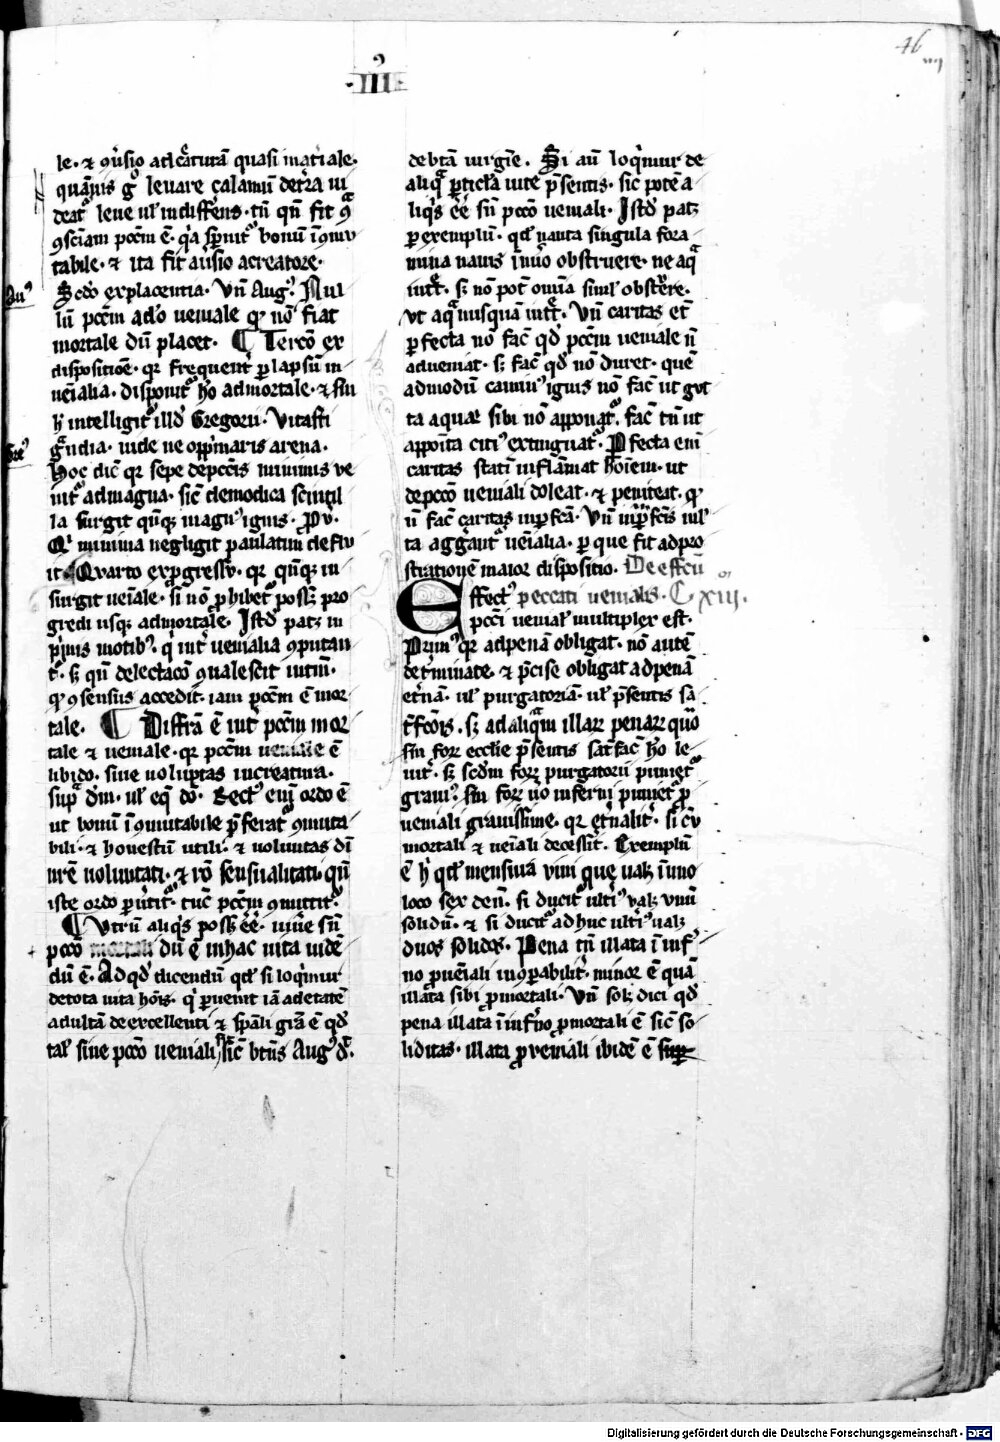 46
·III·
le · ⁊ ꝯuersio ad cͣeaturā quasi mat͛iale ·
quāuis gͦ leuare calamū de t͛ra ui
deatᷣ leue ul̕ indiffērens · tn̄ qn̄ fit ꝯͣ
ꝯsciam pcc̄m ē · qͥa sp̄nitᷣ bonū īꝯmu
tabile · ⁊ ita fit auͥsio a creatore ·
Scd̄o ex placentia · Vn̄ Augꝰ · Nul
lū pcc̄m adeo ueniale qͦ nō fiat
mortale dū placet · ¶ Tercō ex
dispositiōe · qr frequent͛ ꝑ lapsū in
uēialia · disponitᷣ hō ad mortale · ⁊ sm̄
h̄ intelligitᷣ illd̕ Gregorii · Vitasti
gͣndia · uide ne opp̄maris arena ·
Hoc dic̄ qr sepe de pcc̄is minimis ue
nitᷣ ad magna · sic̄ de modica scintil
la surgit qn̄qꝫ magnꝰ ignis · Pͦv̄ ·
Qͥ minima negligit paulatim deflu
it · Quarto ex ꝓgressu · qr qn̄qꝫ in
surgit ueīale · si nō ꝓhibetᷣ possꝫ pro
gredi usqꝫ ad mortale · Istd̕ patꝫ in
pͥmis motibꝰ · qͥ int͛ uenialia ꝯputan
tᷣ · sꝫ qn̄ delectacō ꝯualescit intm̄ ·
qͦ ꝯsensus accedit · iam pcc̄m ē mor
tale · ¶ Diffrā ē int͛ pcc̄m mor
tale ⁊ ueniale · qr pcc̄m ueniale ē
libido · siue uoluptas in creatura ·
supͣ dm̄ · ul̕ eqͣ do · Rectꝰ eni ordo ē
ut bonū īꝯmutabile p̄feratᷣ ꝯmuta
bili · ⁊ honestū utili · ⁊ uoluntas dī
nr̄e uoluntati · ⁊ rō sensualitati · qn̄
iste ordo ꝑuertitᷣ · tūc pcc̄m ꝯmittitᷣ ·
¶ Vtrū aliqͥs possꝫ eē̄ · uiuē sn̄
pccō mortali dū ē in hac uita uidē
dū ē · Ad qd̕ dicendū qd̕ si loqͥmur
de tota uita hōis · qͥ ꝑuenit iā ad etatē
adultā de excellenti ⁊ sp̄ali grā ē qd̕
tal̕ sine pccō ueniali · sic̄ btn̄s Augꝰ dͥc ·
de btā uirgīe · Si aū loqͥmur de
aliqͣ ꝑticl̕a uite p̄sentis · sic potē a
liqͥs eē̄ sn̄ pccō ueniali · Istd̕ patꝫ
ꝑ exemplū · qd̕ nauta singula fora
mina nauis ī mīo obstruere · ne aqͣ
int͛t · sꝫ nō pot̄ omīa simul̕ obst͛re ·
ut aqͣ nusquā int͛t · Vn̄ caritas et̄
ꝑfecta nō fac̄ qd̕ pcc̄m ueniale n̄
adueniat · sꝫ fac̄ qd̕ nō duret · quē
admodū caminꝰ ignis nō fac̄ ut gut
ta aquar sibi nō apponatᷣ · fac̄ tn̄ ut
apponīta citiꝰ extinguatᷣ · Ꝑfecta eni
caritas statī inflāmat hōiem · ut
de pccō ueniali doleat · ⁊ peniteat · qͦ
n̄ fac̄ caritas inꝑfcā · Vn̄ inꝑfcīs ml̕
ta aggͣuantᷣ uēialia · ꝑ que fit ad pro
strationē maior dispositio · De effc̄tu
Effectꝰ peccati uenialis · C XIII ·
pcc̄i uenial̕ multiplex est ·
Primꝰ qr ad penā obligat · nō autē
det͛minate · ⁊ p̄cise obligat ad penā
et͛nā · ul̕ purgatoriā · ul̕ p̄sentis sā
tͥfcōis · sꝫ ad aliqͣm illarꝫ penarꝫ qͦ
sm̄ forꝫ ecclīe p̄sentis satͥsfac̄ hō le
uitᷣ · sꝫ scd̄m forꝫ purgatorii punietᷣ
grauiꝰ · sm̄ forꝫ ūo inferni punietᷣ ꝓ
ueniali grauissime · qr et͛nalit͛ · si cū
mortali ⁊ uēiali decessīt · Exemplū
ē h̄ qd̕ mensurā uini que ualꝫ ī uno
loco sex den̄ · si ducitᷣ ult͛iꝰ ualꝫ unū
solidū · ⁊ si ducitᷣ adhuc ult͛iꝰ ualꝫ
duos solidos · Pena tn̄ illata ī inf͛
no ꝓ uēiali inꝯꝑabilit͛ · minor ē quā
illata sibi ꝓ mortali · Vn̄ solꝫ dici qd̕
pena illata ī inf͛no ꝓ mortali ē sic̄ so
liditas · illata ꝓ ueniali ibidē ē suꝑ